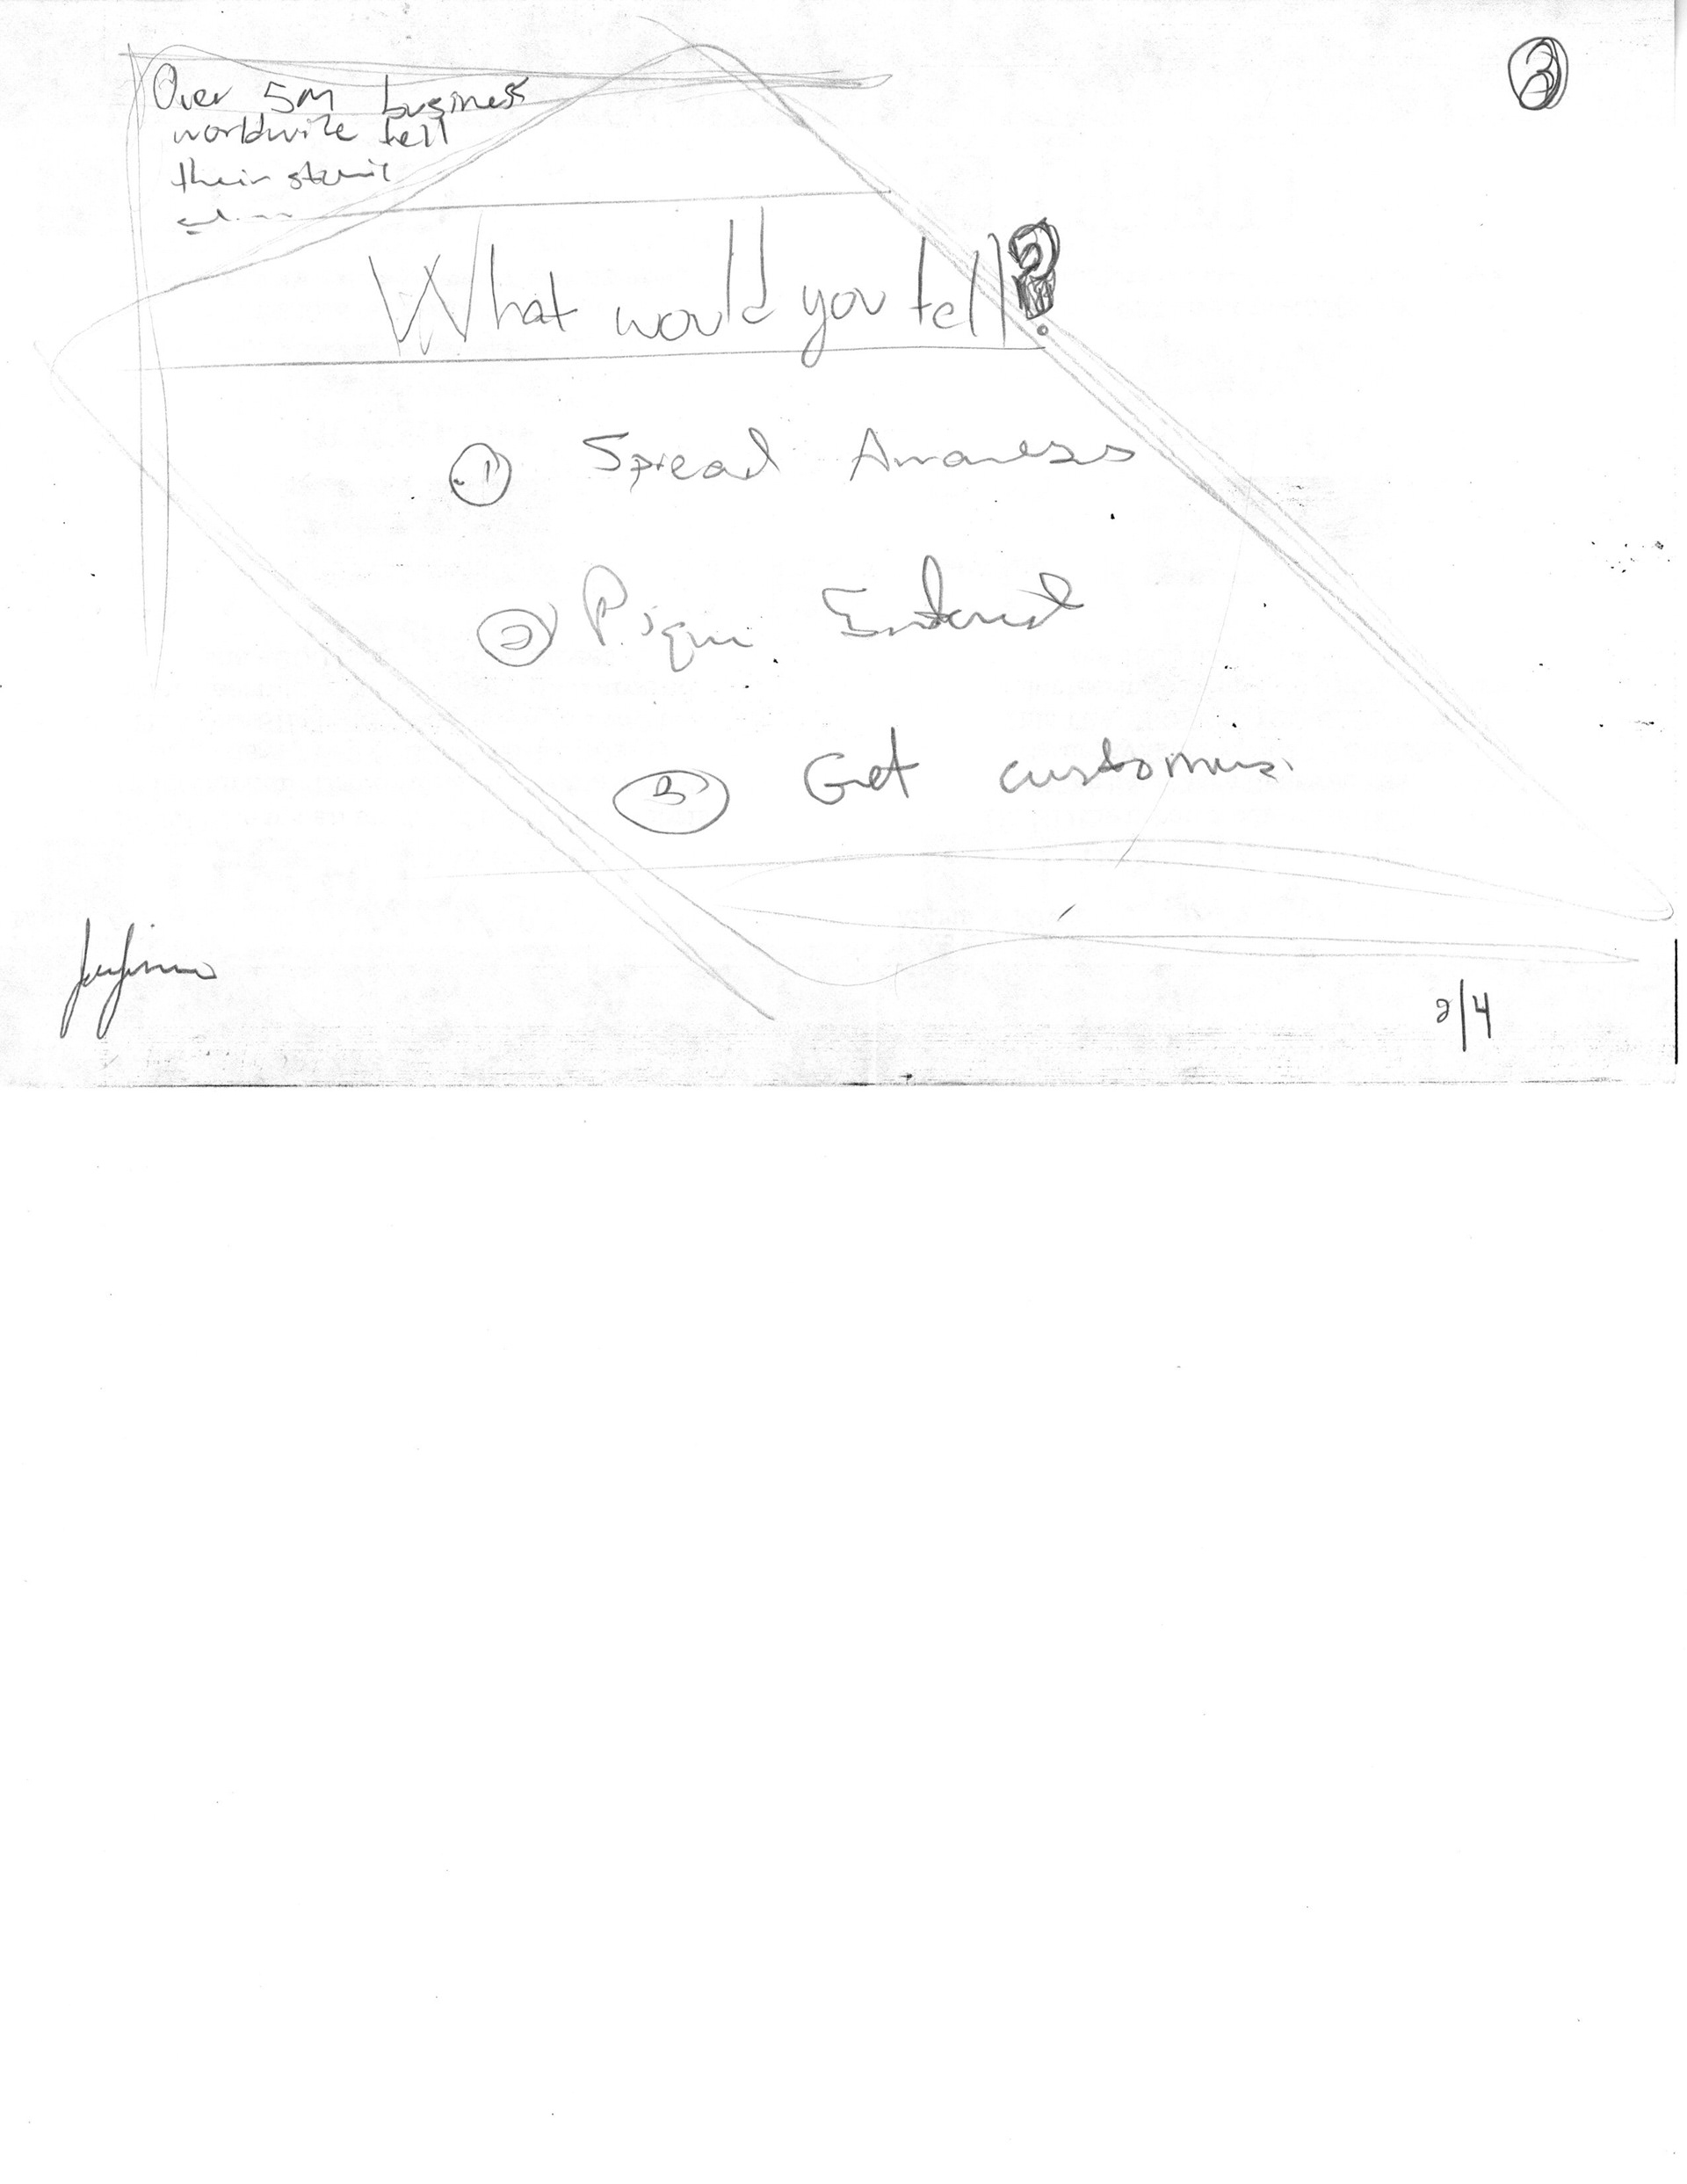 3
Over 5M business
worldwide tell
their
What would you tell?
1 Spread Awareness
2 Pique Interest
3 Get customers
2/4